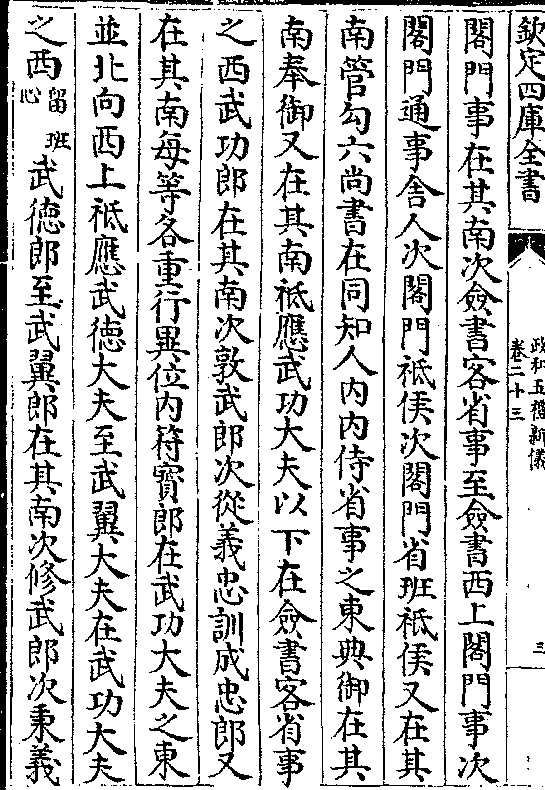 欽定四庫全書
政和五禮新儀
卷二十三
三
閤門事在其南次僉書客省事至僉書西上閤門事次
閤門通事舍人次閤門祗候次閤門省班祗候又在其
南管勾六尚書在同知入内内侍省事之東典御在其
南奉御又在其南祗應武功大夫以下在僉書客省事
之西武功郎在其南次敦武郎次從義忠訓成忠郎又
在其南每等各重行異位内符寳郎在武功大夫之東
並北向西上祗應武德大夫至武翼大夫在武功大夫
之西留班心武德郎至武翼郎在其南次修武郎次秉義